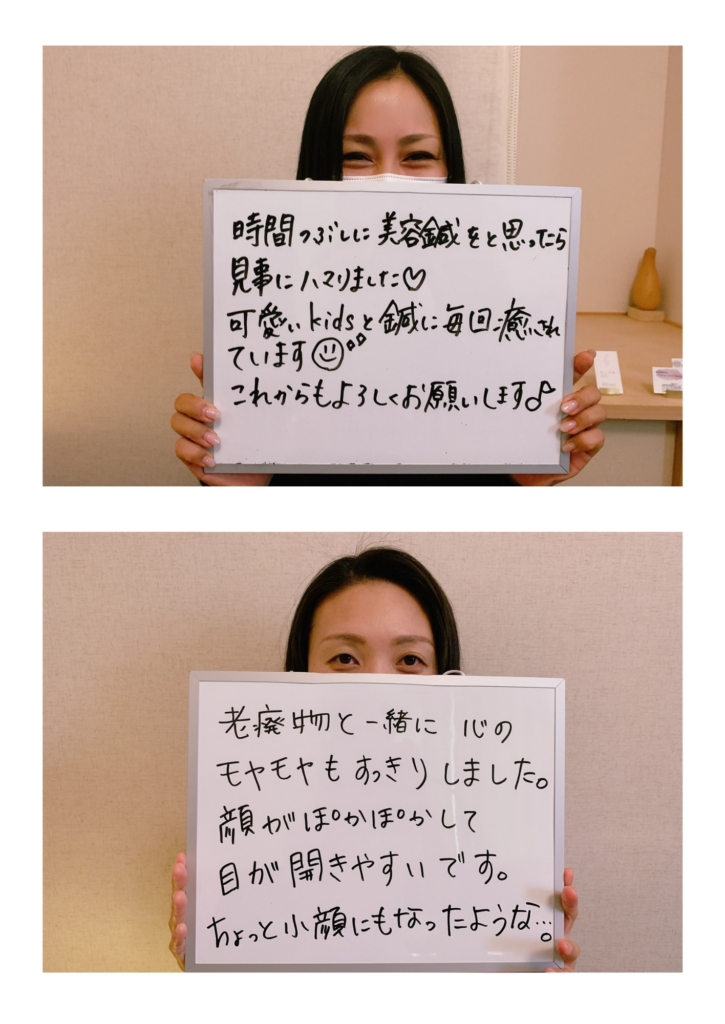 時間つぶしに美容鍼をと思ったら
見事にハマりました♡
可愛いkidsと鍼に毎回癒され
ています
これからもよろしくお願いします♪
老廃物と一緒に 心の
モヤモヤもすっきりしました。
顔がぽかぽかして
目が開きやすいです。
ちょっと小顔にもなったような…。